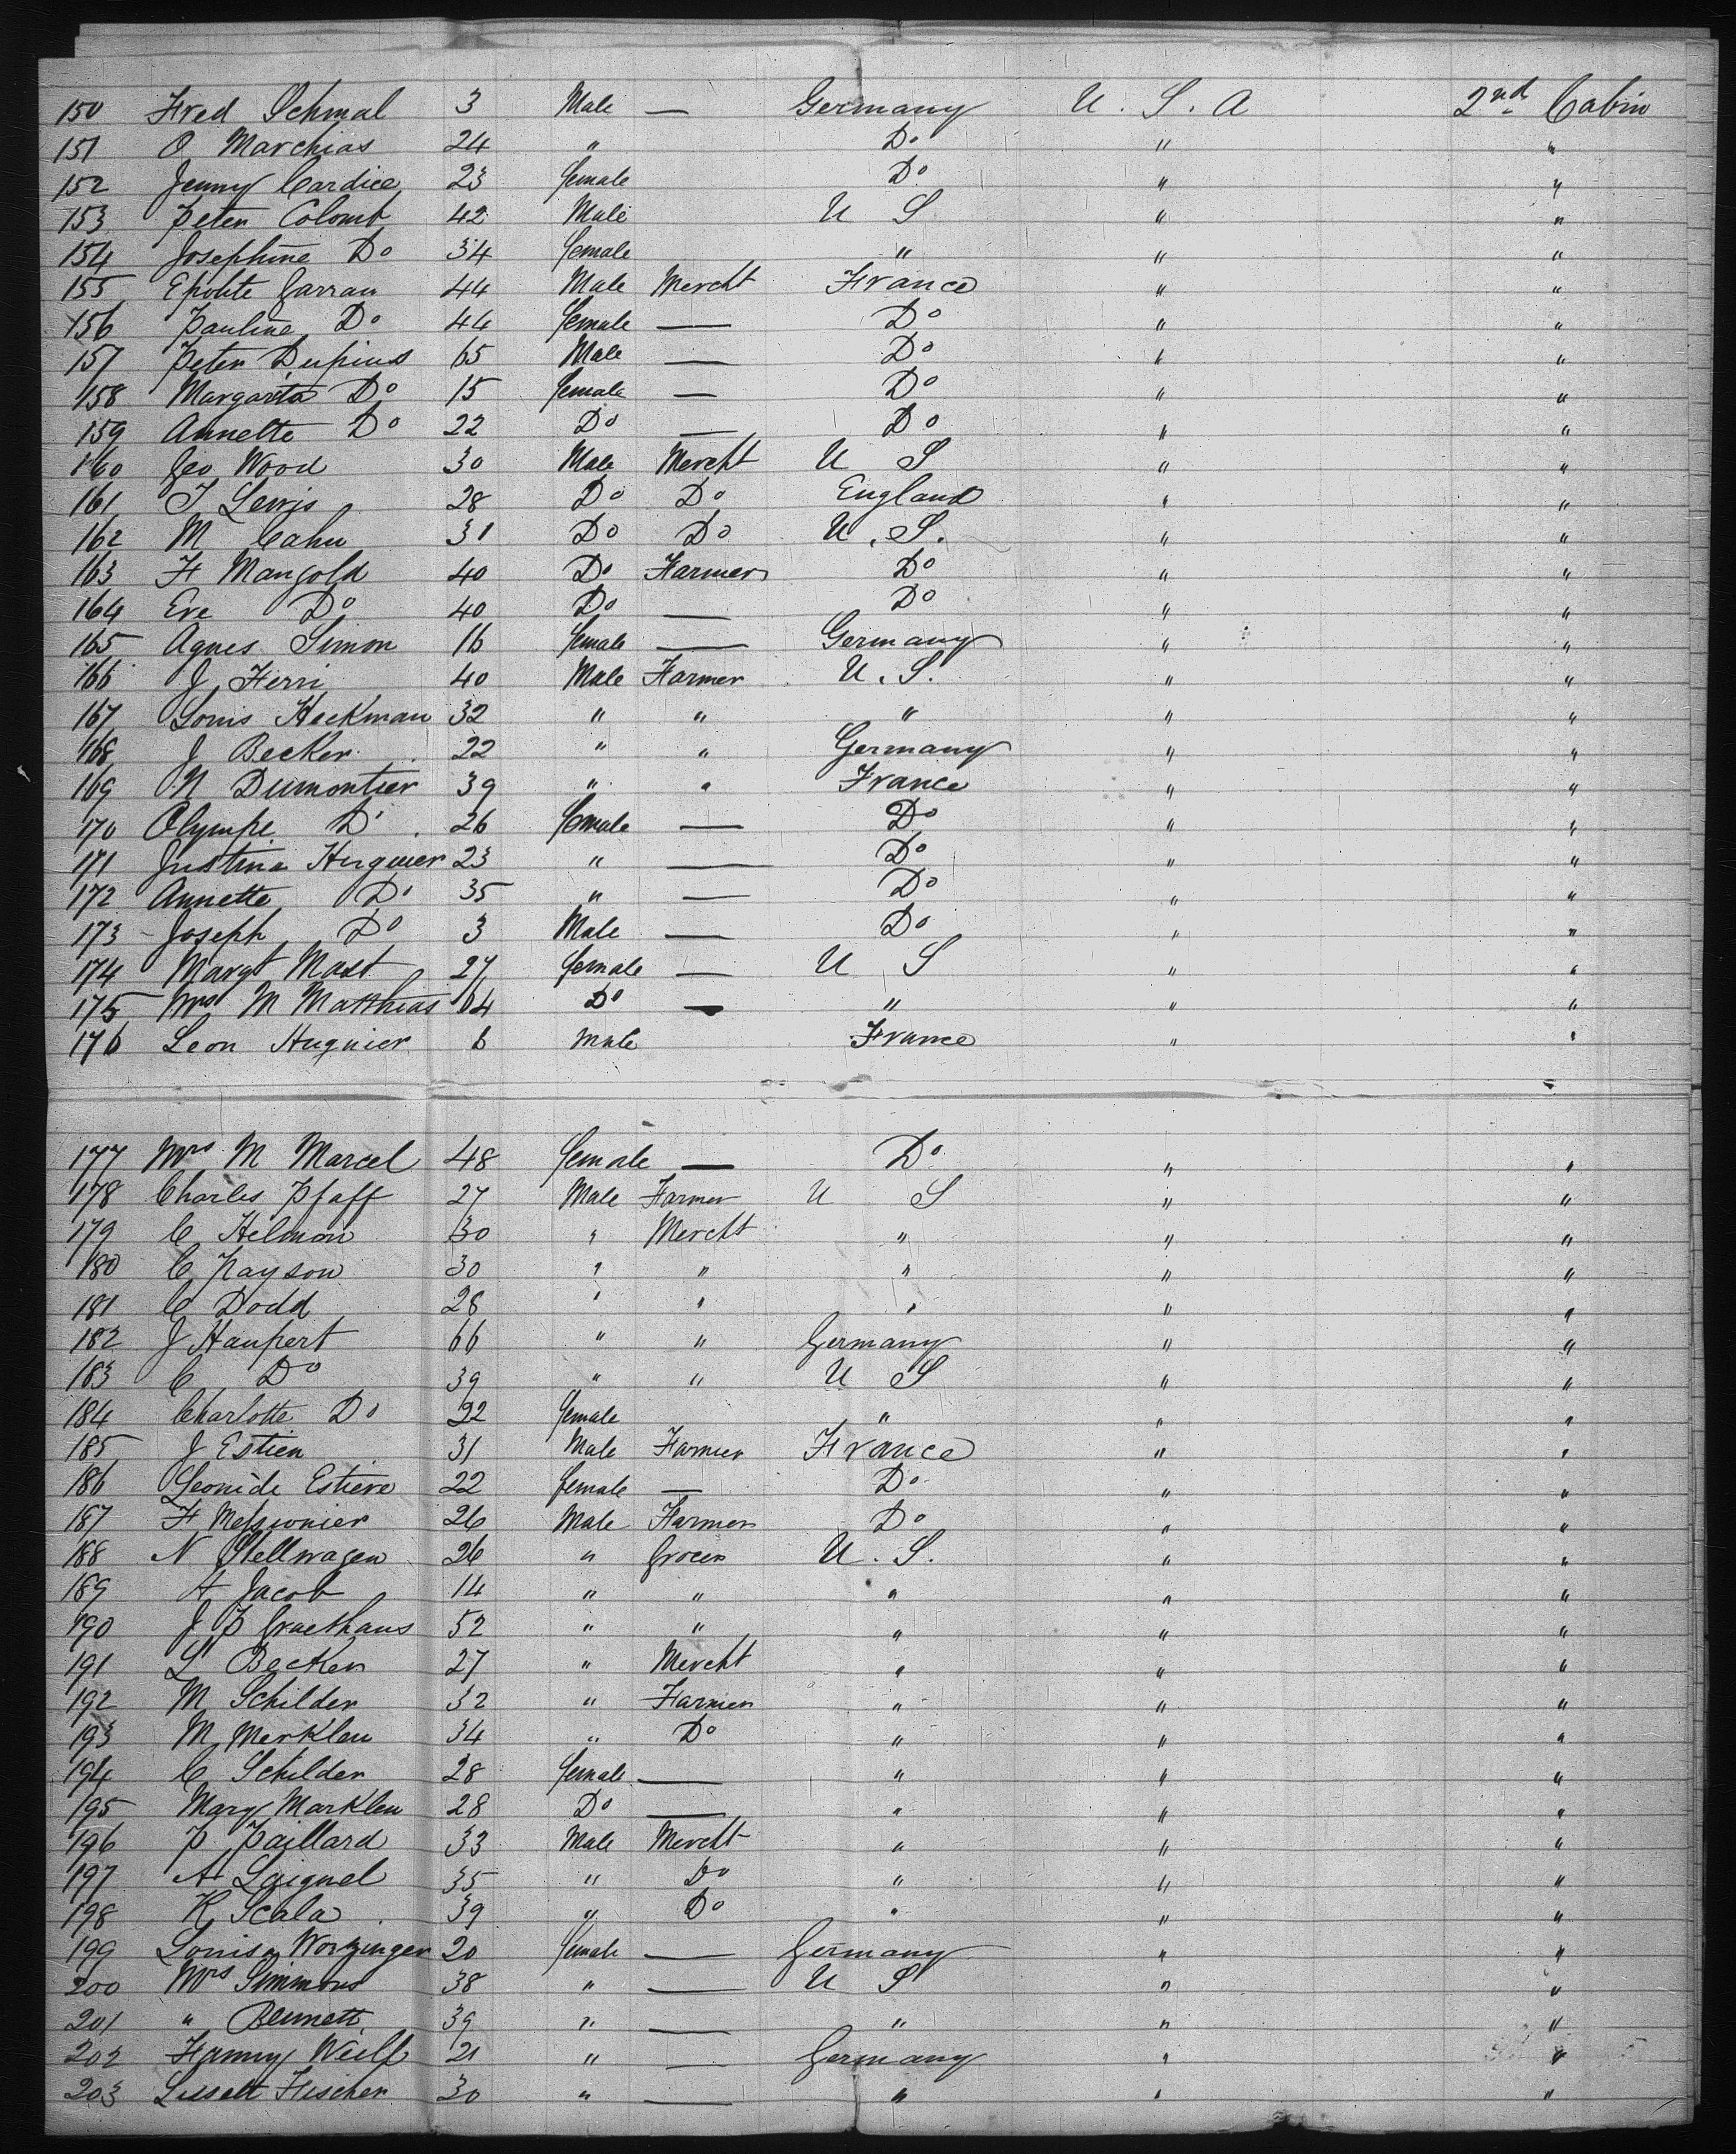 150 Fred Schmal 3 Male — Germany U. S. A 2nd Cabin
151 O Marchias 24 " Do " "
152 Jenny Cardice 23 female Do " "
153 Peter Colomb 42 Male U S " "
154 Josephine Do 34 female " " "
155 Epolite Garrau 44 Male Mercht France " "
156 Pauline Do 44 female — Do " "
157 Peter Dupius 65 Male — Do " "
158 Margarita Do 15 female — Do " "
159 Annette Do 22 Do — Do " "
160 Geo Wood 30 Male Mercht U S " "
161 J Lewis 28 Do Do England " "
162 M Cahn 31 Do Do U. S. " "
163 F Mangold 40 Do Farmer Do " "
164 Eve Do 40 Do — Do " "
165 Agnes Simon 16 female — Germany " "
166 J Ferri 40 Male Farmer U. S. " "
167 Louis Heckman 32 " " " " "
168 J Becker 22 " " Germany " "
169 N Dumontier 39 " " France " "
170 Olympe Do 26 female — Do " "
171 Justina Huguier 23 " — Do " "
172 Annette Do 35 " — Do " "
173 Joseph Do 3 Male — Do " "
174 Margt Mast 27 female — U S " "
175 Mrs M Matthias 64 Do — " " "
176 Leon Huguier 6 Male France " "
177 Mrs M Marcel 48 female — Do " "
178 Charles Pfaff 27 Male Farmer U S " "
179 C Helmon 30 " Mercht " " "
180 C Payson 30 " " " " "
181 C Dodd 28 " " " " "
182 J Haupert 66 " " Germany " "
183 C Do 39 " " U S " "
184 Charlotte Do 22 female " " "
185 J Estien 31 Male Farmer France " "
186 Leonide Estiere 22 female — Do " "
187 F Messionier 26 Male Farmer Do " "
188 N Stellwagen 26 " Grocer U. S. " "
189 A Jacob 14 " " " " "
190 J P Graethaus 52 " " " " "
191 L Becker 27 " Mercht " " "
192 M Schilder 32 " Farmer " " "
193 M Merklen 34 " Do " " "
194 C Schilder 28 female — " " "
195 Mary Marklen 28 Do — " " "
196 P. Paillard 33 Male Mercht " " "
197 A Laignel 35 " Do " " "
198 K Scala 39 " Do " " "
199 Louisa Worzinger 20 female — Germany " "
200 Mrs Simmons 38 " — U S " "
201 " Bennett 39 " — " " "
202 Fanny Weill 21 " — Germany " "
203 Lissett Fischer 30 " — " " "